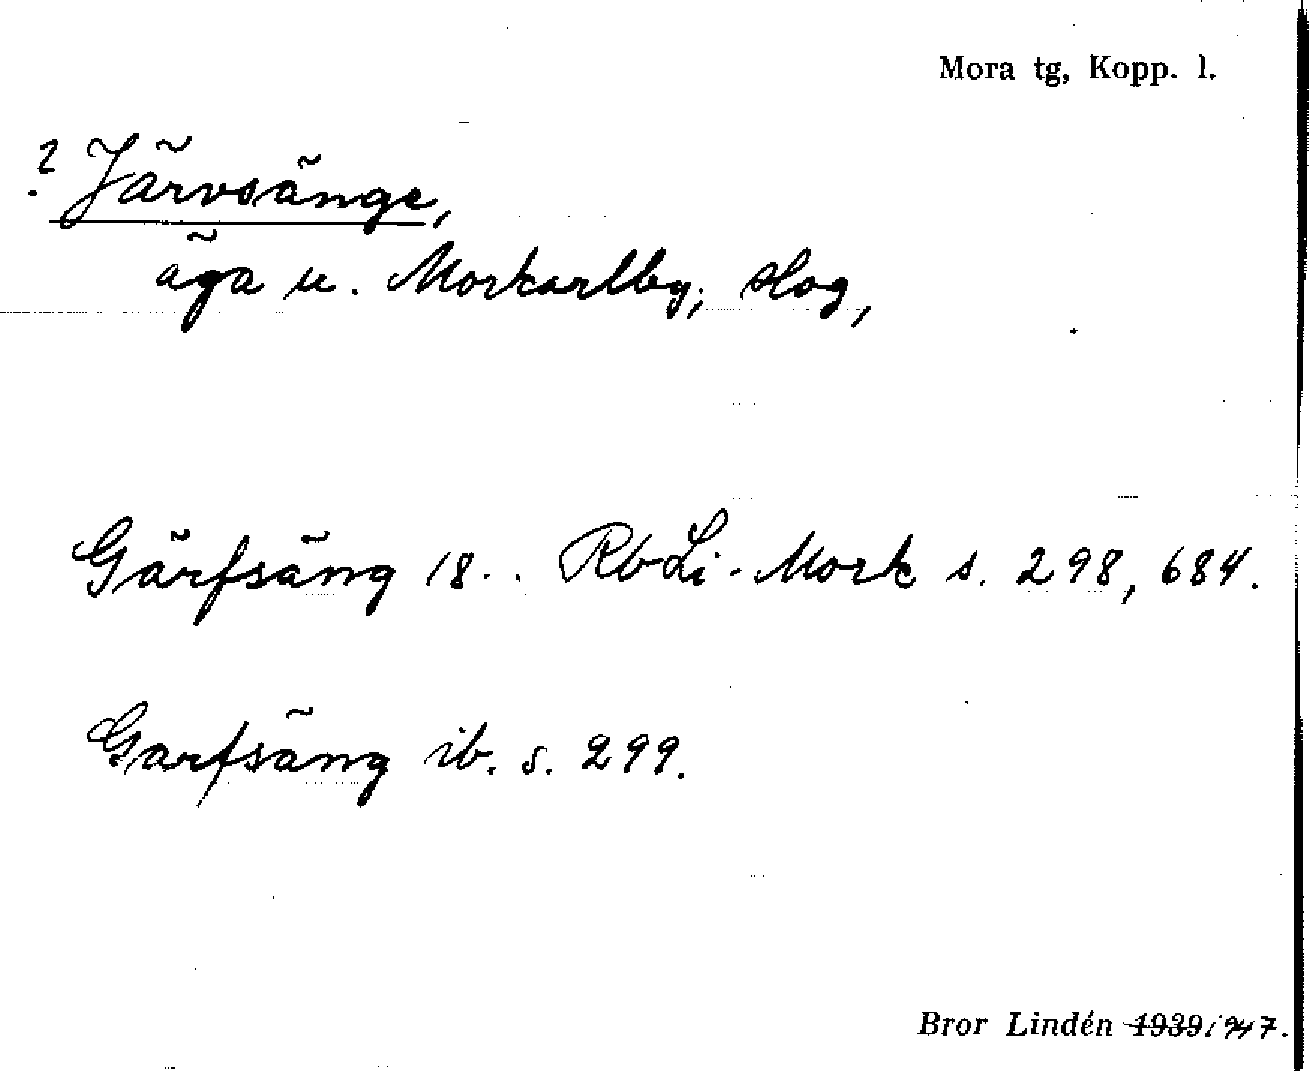 Mora tg, Kopp. l.
? Järvsänge,
äga u. Morkarlby, slog,
Gärfsäng 18.. RbLi-Mork s. 298, 684.
Garfsäng ib. s. 299.
Bror Lindén 1939 1947.